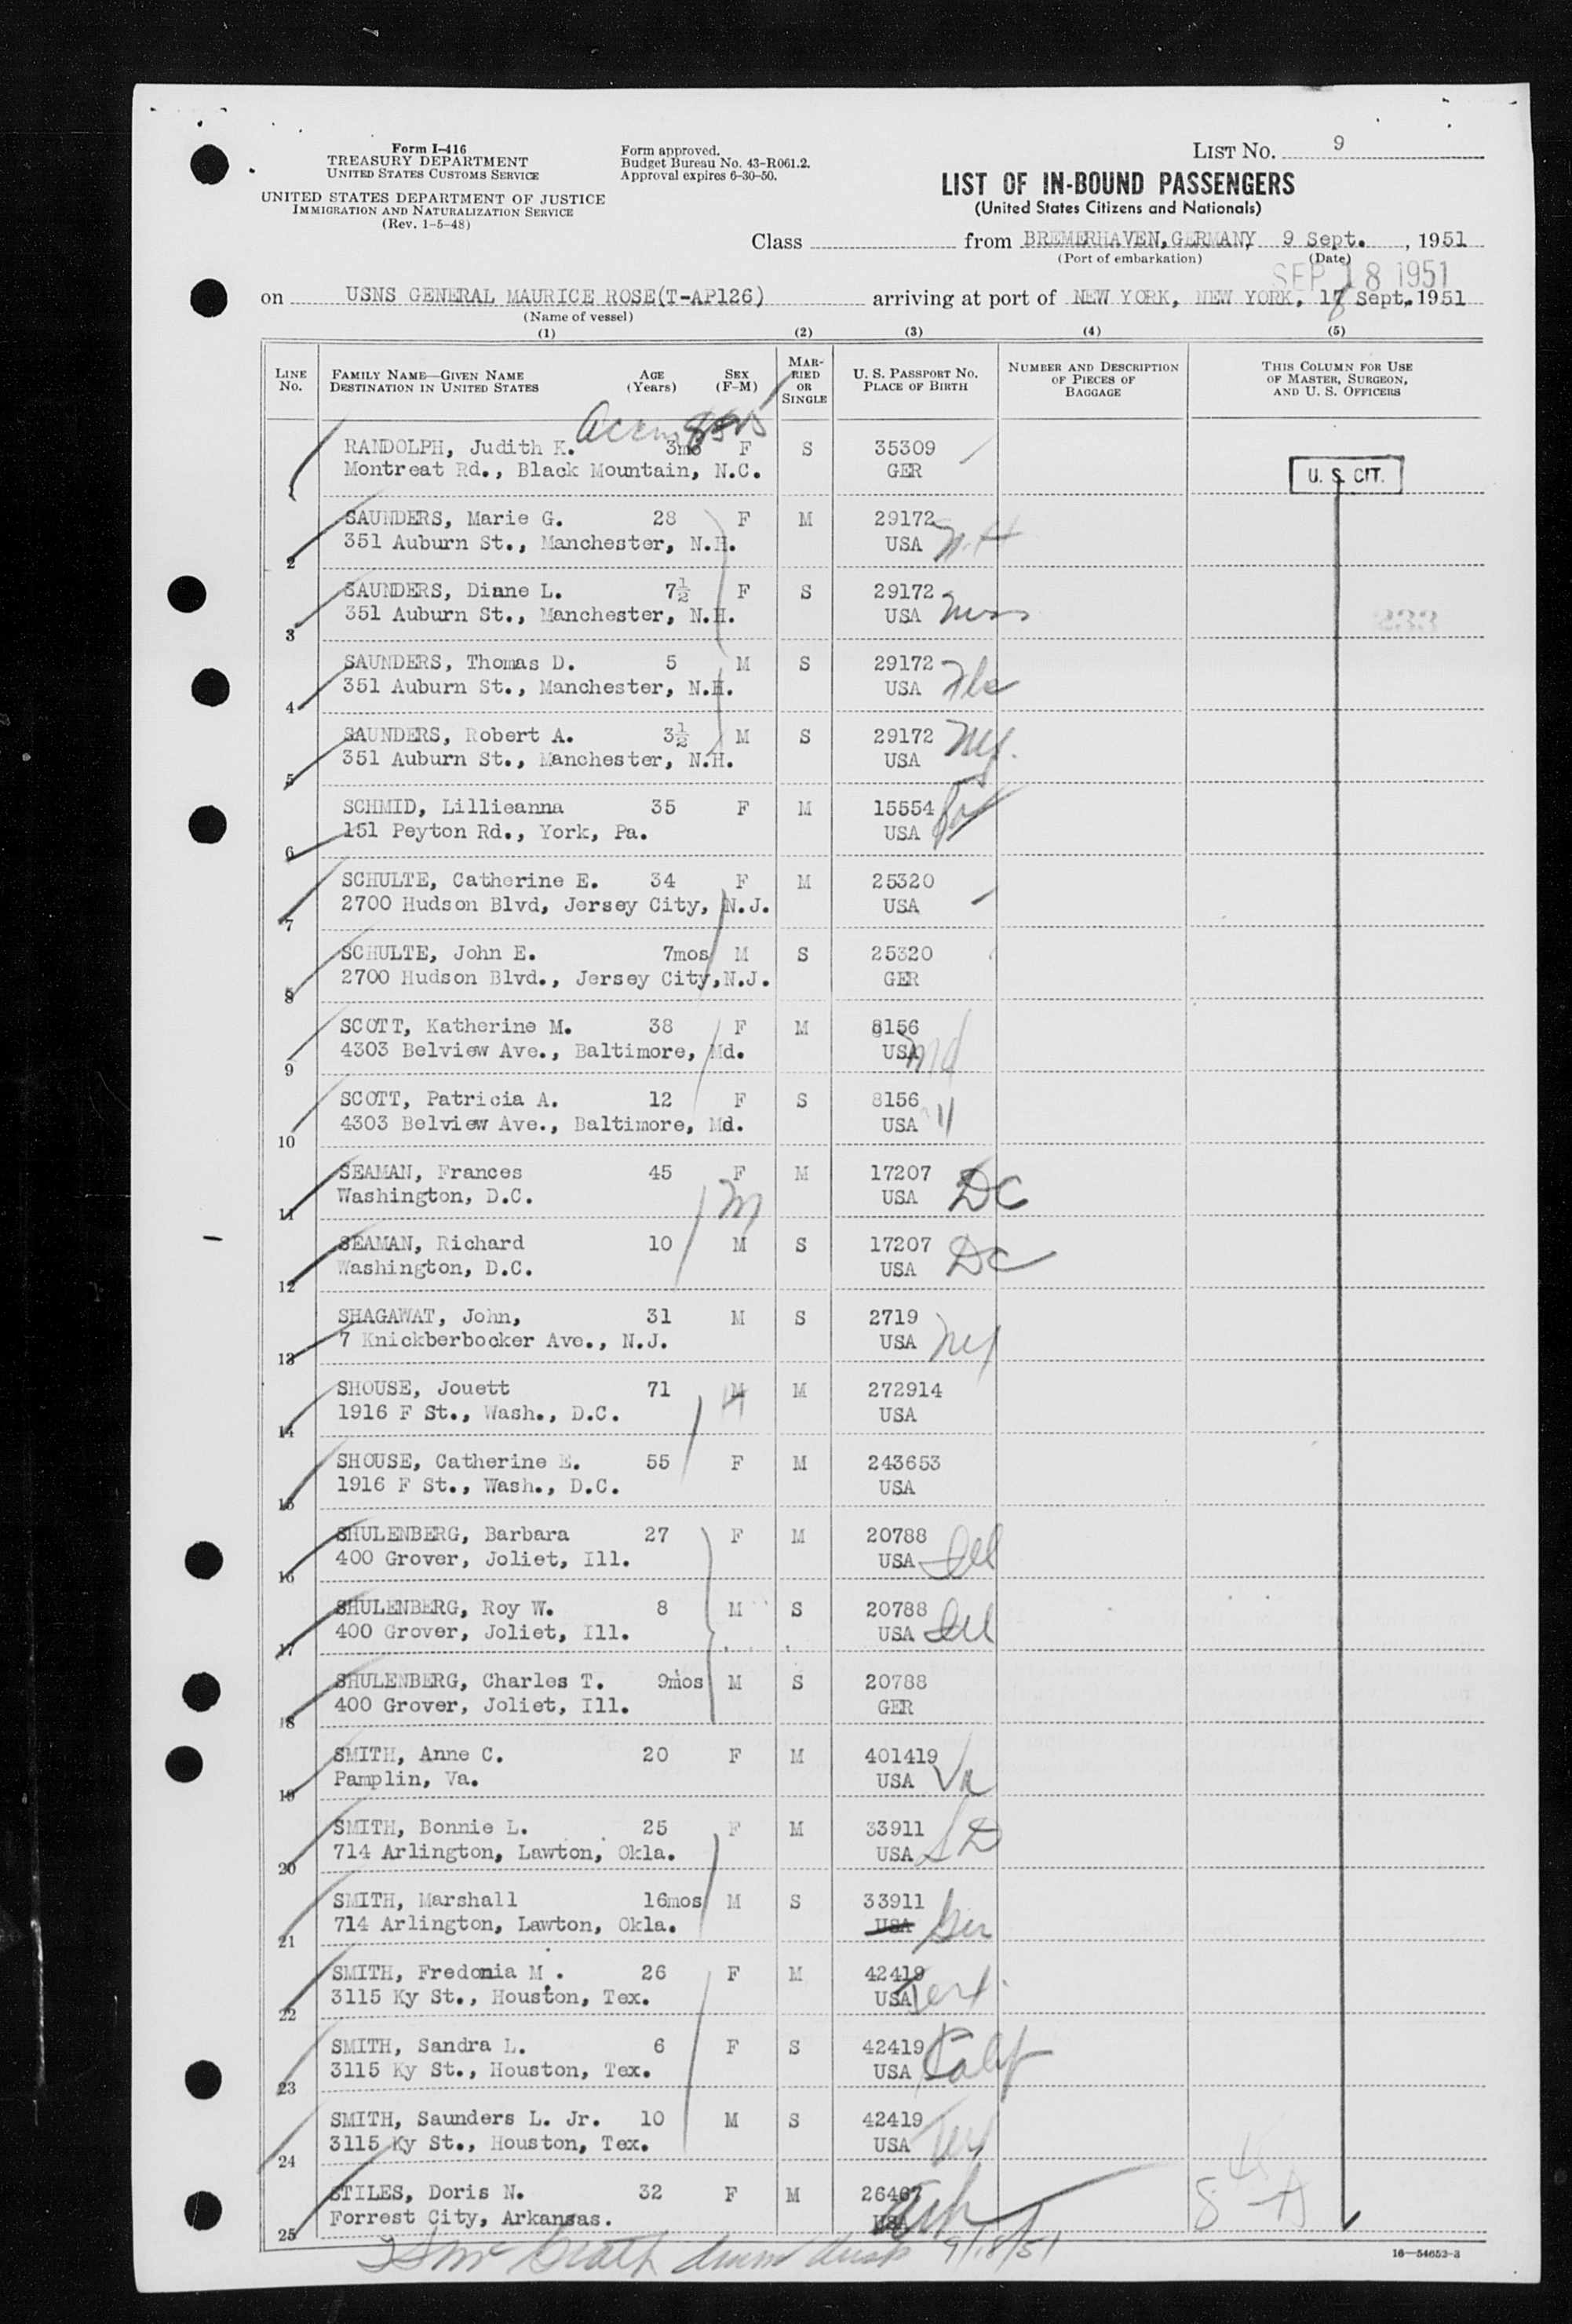 Form I-416
TREASURY DEPARTMENT
UNITED STATES CUSTOMS SERVICE
UNITED STATES DEPARTMENT OF JUSTICE
IMMIGRATION AND NATURALIZATION SERVICE
(Rev. 1-5-48)
Form approved.
Budget Bureau No. 43-R061.2.
Approval expires 6-30-50.
LIST NO. 9
LIST OF IN-BOUND PASSENGERS
(United States Citizens and Nationals)
Class from BREMERHAVEN, GERMANY 9 Sept. , 1951
(Port of embarkation) (Date)
SEP 18 1951
on USNS GENERAL MAURICE ROSE(T-AP126) arriving at port of NEW YORK, NEW YORK, 18 Sept. 1951
(Name of vessel)
(1) (2) (3) (4) (5)
LINE NO. FAMILY NAME—GIVEN NAME DESTINATION IN UNITED STATES AGE (Years) SEX (F-M) MARRIED OR SINGLE U. S. PASSPORT NO. PLACE OF BIRTH NUMBER AND DESCRIPTION OF PIECES OF BAGGAGE THIS COLUMN FOR USE OF MASTER, SURGEON, AND U. S. OFFICERS
RANDOLPH, Judith K. 3mo F S 35309
1 Montreat Rd., Black Mountain, N.C. GER U. S. CIT.
SAUNDERS, Marie G. 28 F M 29172
2 351 Auburn St., Manchester, N.H. USA N.H
SAUNDERS, Diane L. 7½ F S 29172
3 351 Auburn St., Manchester, N.H. USA 233
SAUNDERS, Thomas D. 5 M S 29172
4 351 Auburn St., Manchester, N.H. USA Fla
SAUNDERS, Robert A. 3½ M S 29172
5 351 Auburn St., Manchester, N.H. USA NY.
SCHMID, Lillieanna 35 F M 15554
6 151 Peyton Rd., York, Pa. USA
SCHULTE, Catherine E. 34 F M 25320
7 2700 Hudson Blvd, Jersey City, N.J. USA
SCHULTE, John E. 7mos M S 25320
8 2700 Hudson Blvd., Jersey City, N.J. GER
SCOTT, Katherine M. 38 F M 8156
9 4303 Belview Ave., Baltimore, Md. USA Md
SCOTT, Patricia A. 12 F S 8156
10 4303 Belview Ave., Baltimore, Md. USA "
SEAMAN, Frances 45 F M 17207
11 Washington, D.C. M USA DC
SEAMAN, Richard 10 M S 17207
12 Washington, D.C. USA DC
SHAGAWAT, John, 31 M S 2719
13 7 Knickberbocker Ave., N.J. USA NY
SHOUSE, Jouett 71 M M 272914
14 1916 F St., Wash., D.C. USA
SHOUSE, Catherine E. 55 F M 243653
15 1916 F St., Wash., D.C. USA
SHULENBERG, Barbara 27 F M 20788
16 400 Grover, Joliet, Ill. USA Ill
SHULENBERG, Roy W. 8 M S 20788
17 400 Grover, Joliet, Ill. USA Ill
SHULENBERG, Charles T. 9mos M S 20788
18 400 Grover, Joliet, Ill. GER
SMITH, Anne C. 20 F M 401419
19 Pamplin, Va. USA Va
SMITH, Bonnie L. 25 F M 33911
20 714 Arlington, Lawton, Okla. USA SD
SMITH, Marshall 16mos M S 33911
21 714 Arlington, Lawton, Okla. USA Ger
SMITH, Fredonia M. 26 F M 42419
22 3115 Ky St., Houston, Tex. USA Tex.
SMITH, Sandra L. 6 F S 42419
23 3115 Ky St., Houston, Tex. USA Calif
SMITH, Saunders L. Jr. 10 M S 42419
24 3115 Ky St., Houston, Tex. USA
STILES, Doris N. 32 F M 26467
25 Forrest City, Arkansas. USA Ark
9/18/51
16—54652-3